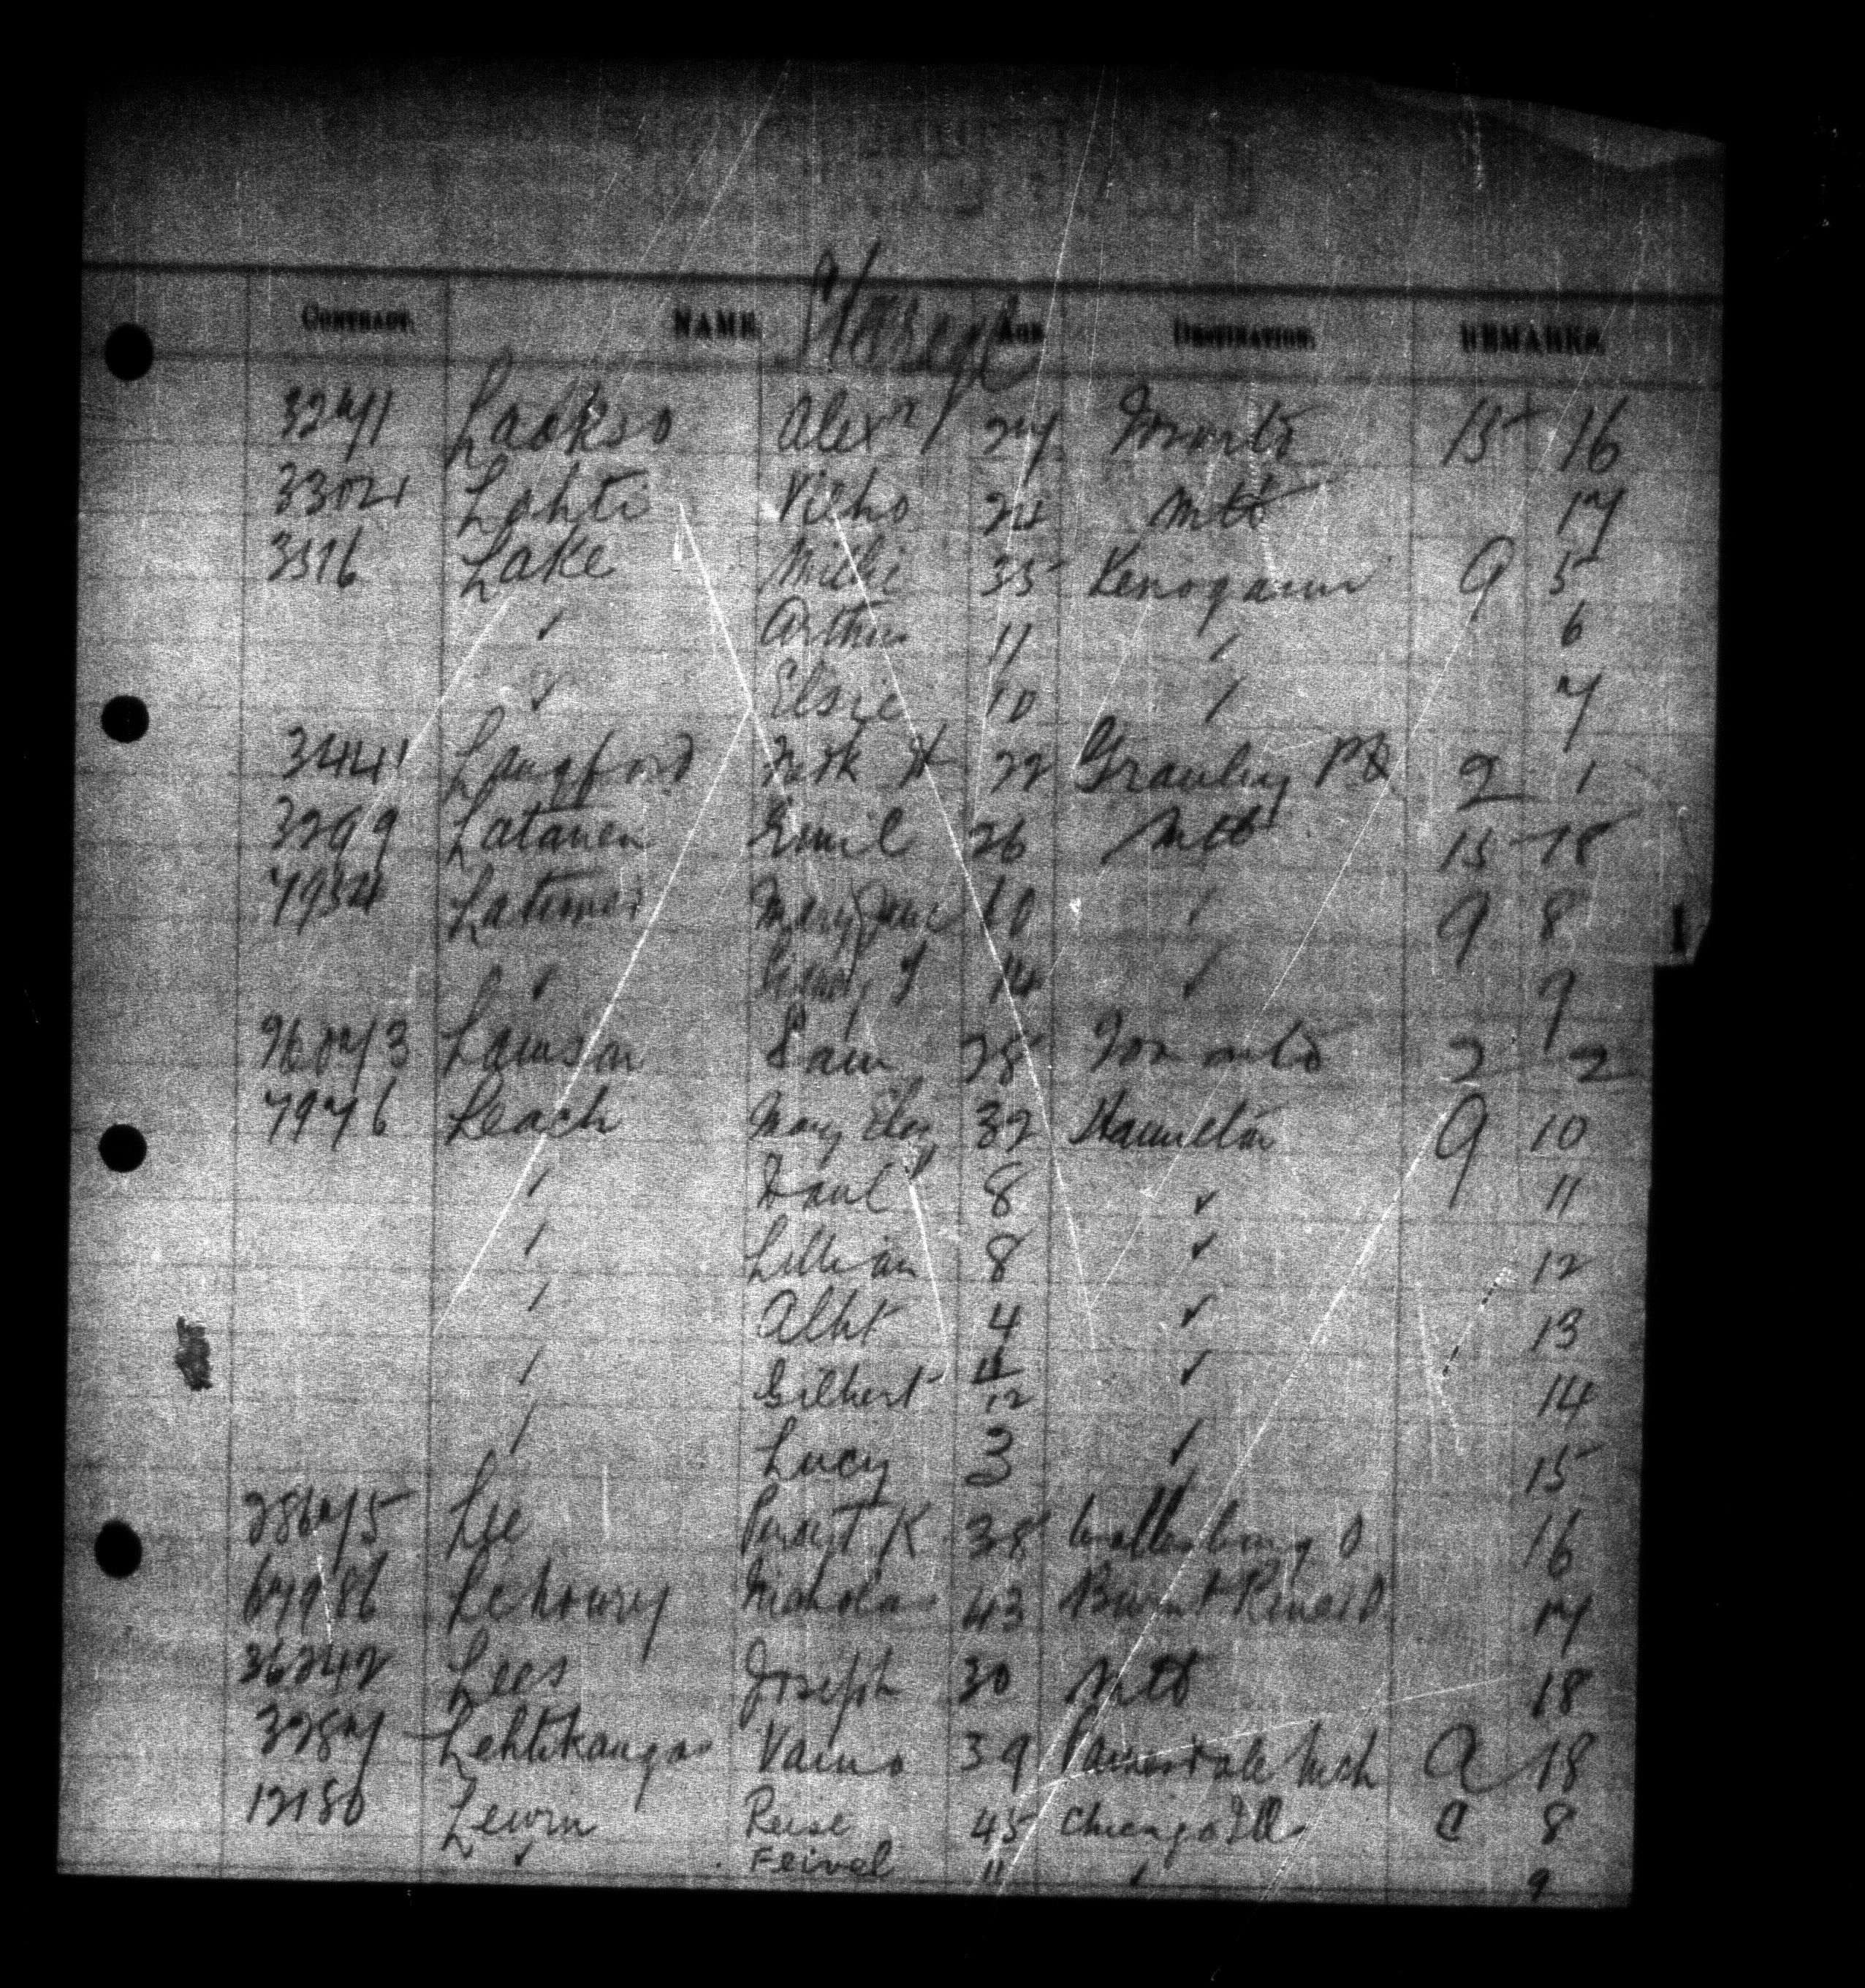 Steerage
CONTRACT. NAME. AGE DESTINATION. REMARKS.
32971 Laakso Alexr 27 Toronto 15 16
33021 Lahti Vilho 24 Mtl 17
3576 Lake Millie 35 Kenogami 9 5
✓ Arthur 11 / 6
✓ Elsie 10 / 7
3441 Langford Fredk H 22 Granby PQ 2 1
3299 Latanen Emil 26 Mtl 15 18
7934 Latimer Mary Jane 40 / 9 8
✓ 14 ✓ 9
96073 Lawson Sam 28 Toronto 2 2
7976 Leach Mary Elez 32 Hamilton 9 10
/ 8 ✓ 11
/ Lillian 8 ✓ 12
/ Albt 4 ✓ 13
/ Gilbert 11/12 ✓ 14
/ Lucy 3 ✓ 15
28675 Lee K 38 Wallaceburg O 16
67986 Nicholas 43 Burnt River O 17
36242 Lees Joseph 30 Mtl 18
3287 Lehtikangas Vaino 39 Painesdale Mch A 18
12180 Lewin Reise 45 Chicago Ill C 8
✓ Feivel 11 / 9